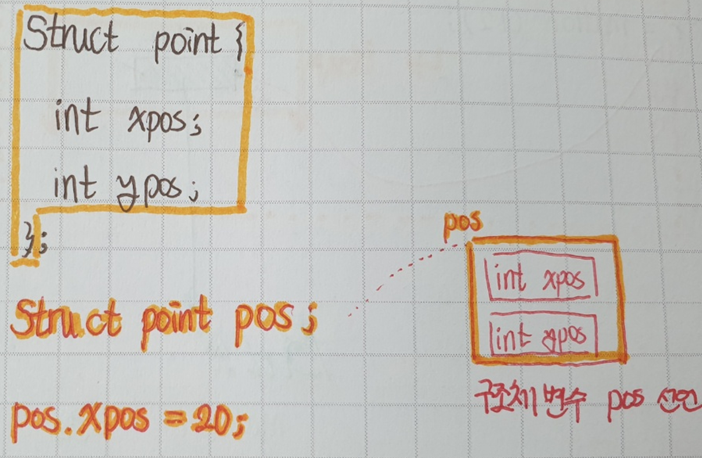 Struct point {
int xpos;
int ypos;
};
Struct point pos;
pos.xpos = 20;
pos
int xpos
int ypos
구조체 변수 pos 선언